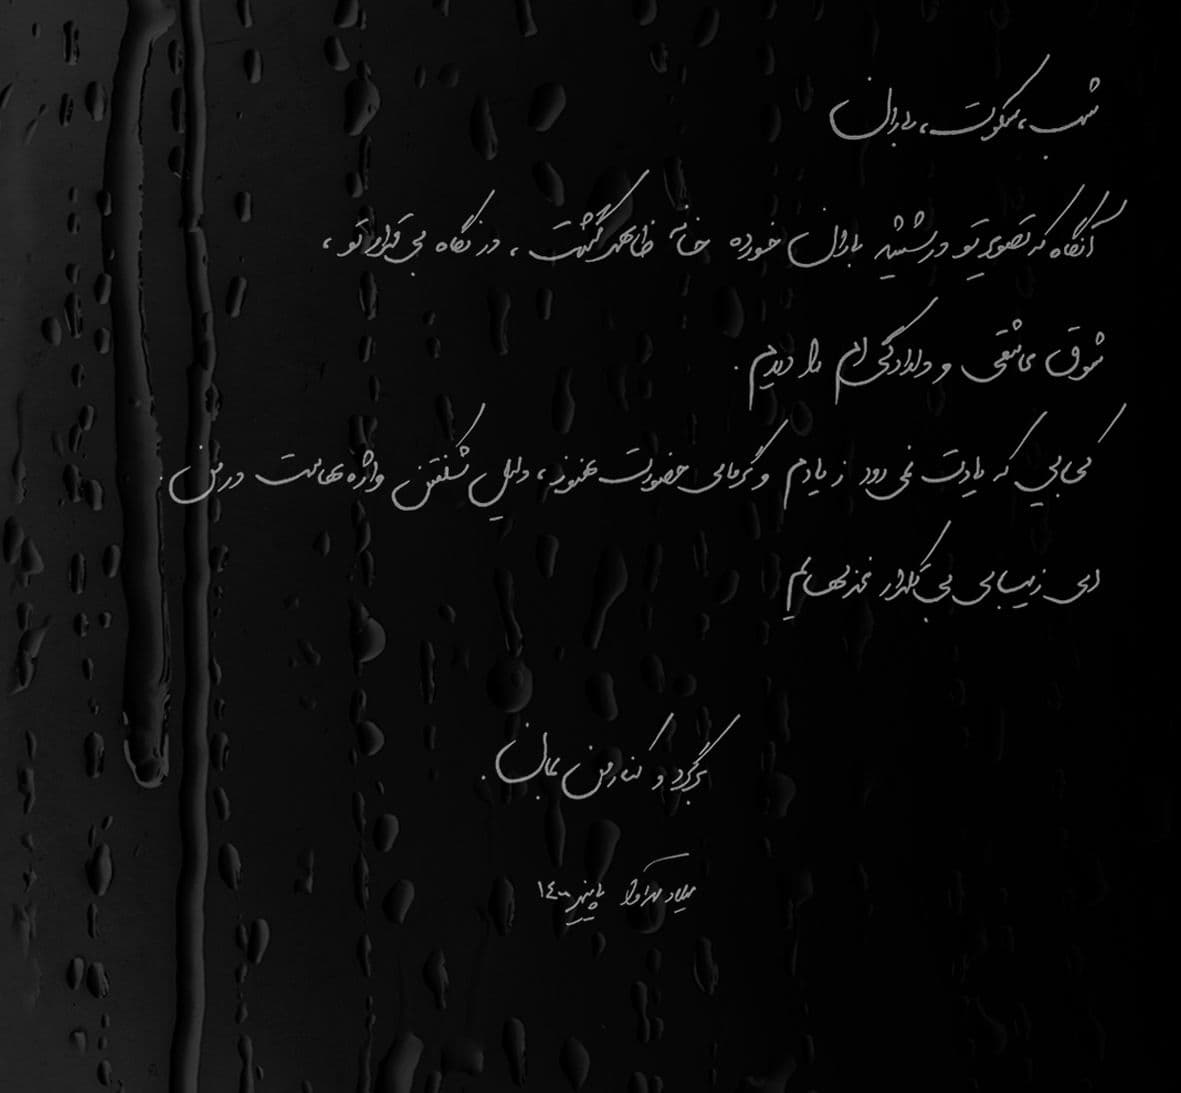 شب، سکوت، باران
آنگاه که تصویر تو در شیشه باران خورده خانه ظاهر گشت، در نگاه بی قرار تو،
شوق عاشقی و دلدادگی ام را دیدم.
کجایی که یادت نمی رود ز یادم و گرمای حضورت هنوز، دلیل شکفتن واژه هاست در من.
ای زیبای بی تکرار
برگرد و کنار من بمان.
میلاد پاییز ۱۴۰۰